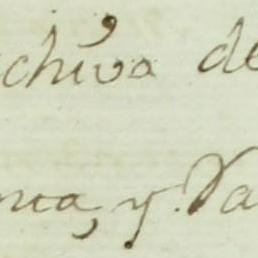 chivo de
nca, y Va